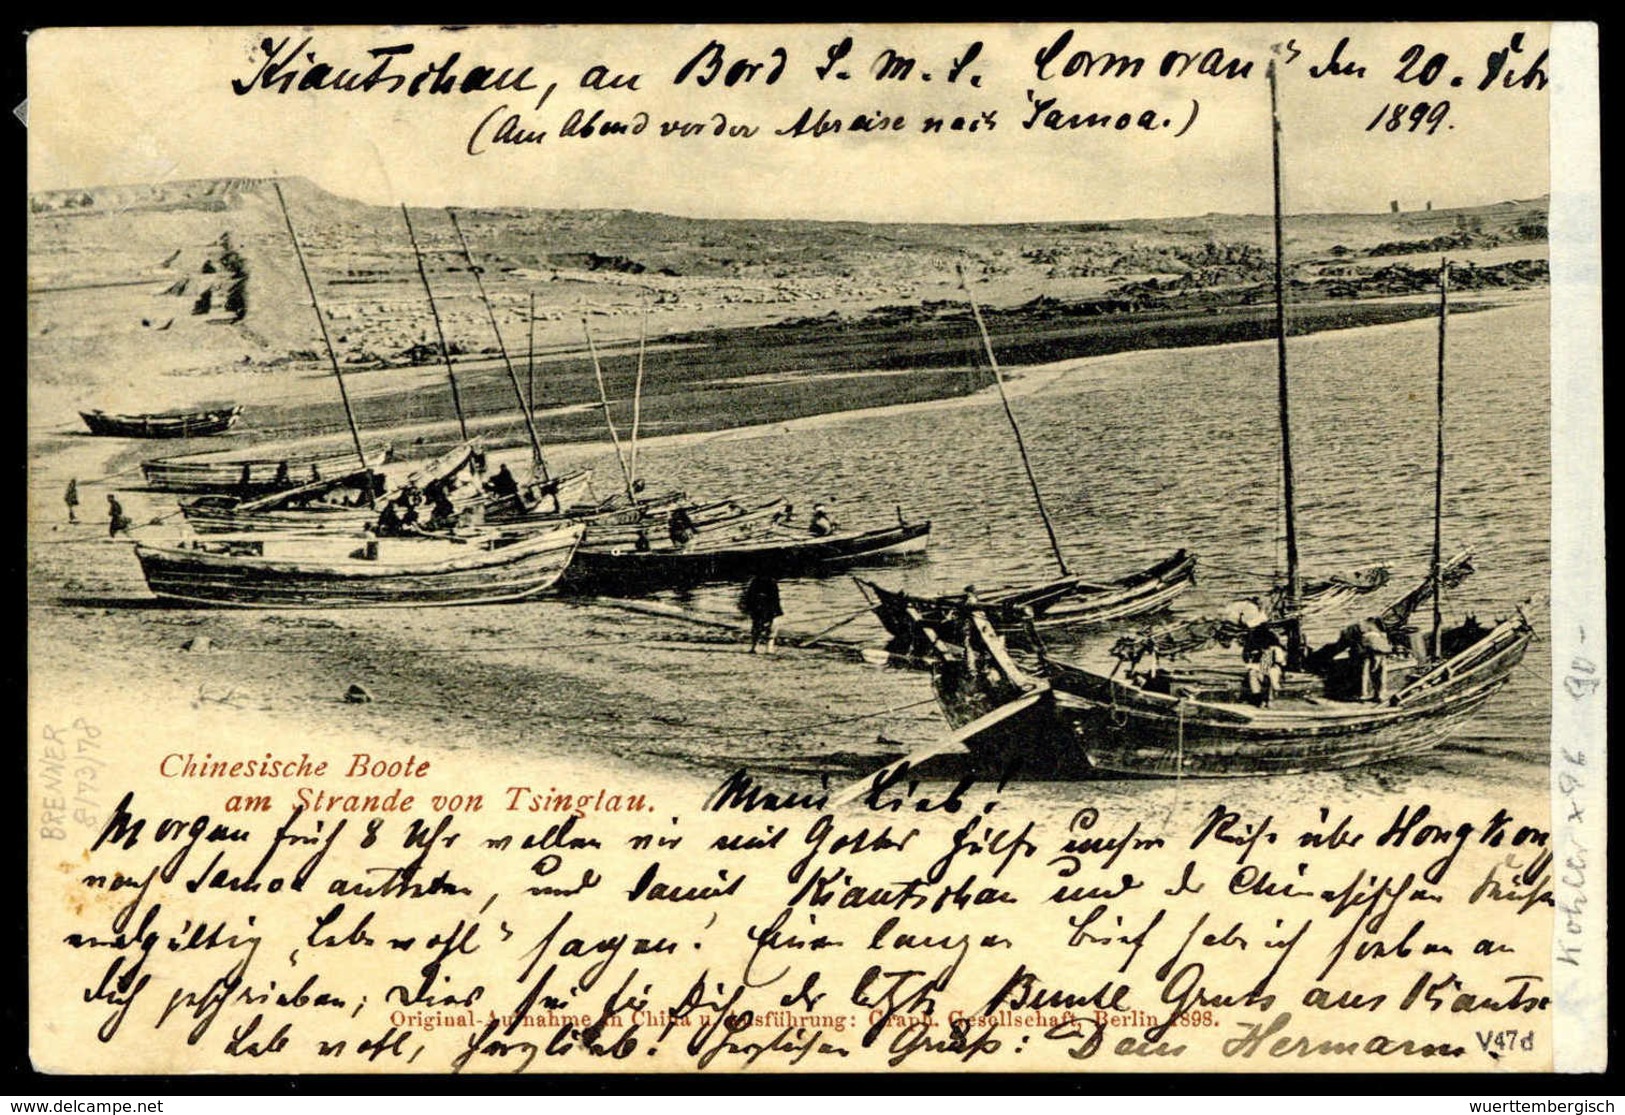 Kiautschau, an Bord S. M. S. Cormoran" den 20. Febr
(Am Abend vor der Abreise nach Samoa.) 1899.
Chinesische Boote
am Strande von Tsinglau.
Mein Lieb!
Morgen früh 8 Uhr wollen wir mit Gottes Hülfe unsere Reise über Hong Kong
nach Samoa antreten, und damit Kiautschau und der Chinesischen Küste
endgültig „Lebewohl" sagen! Einen langen Brief habe ich soeben an
Dich geschrieben; Dies sei für Dich der letzte Bunte Gruss aus Kiautsc
Original-Aufnahme in China u. Ausführung: Graph. Gesellschaft, Berlin 1898.
Leb wohl, Herzlieb! Herzlichen Gruß: Dein Hermann.
V47d
BRENNER
8/73/78
Köhler x 96 90-
© www.delcampe.net
wuerttembergisch